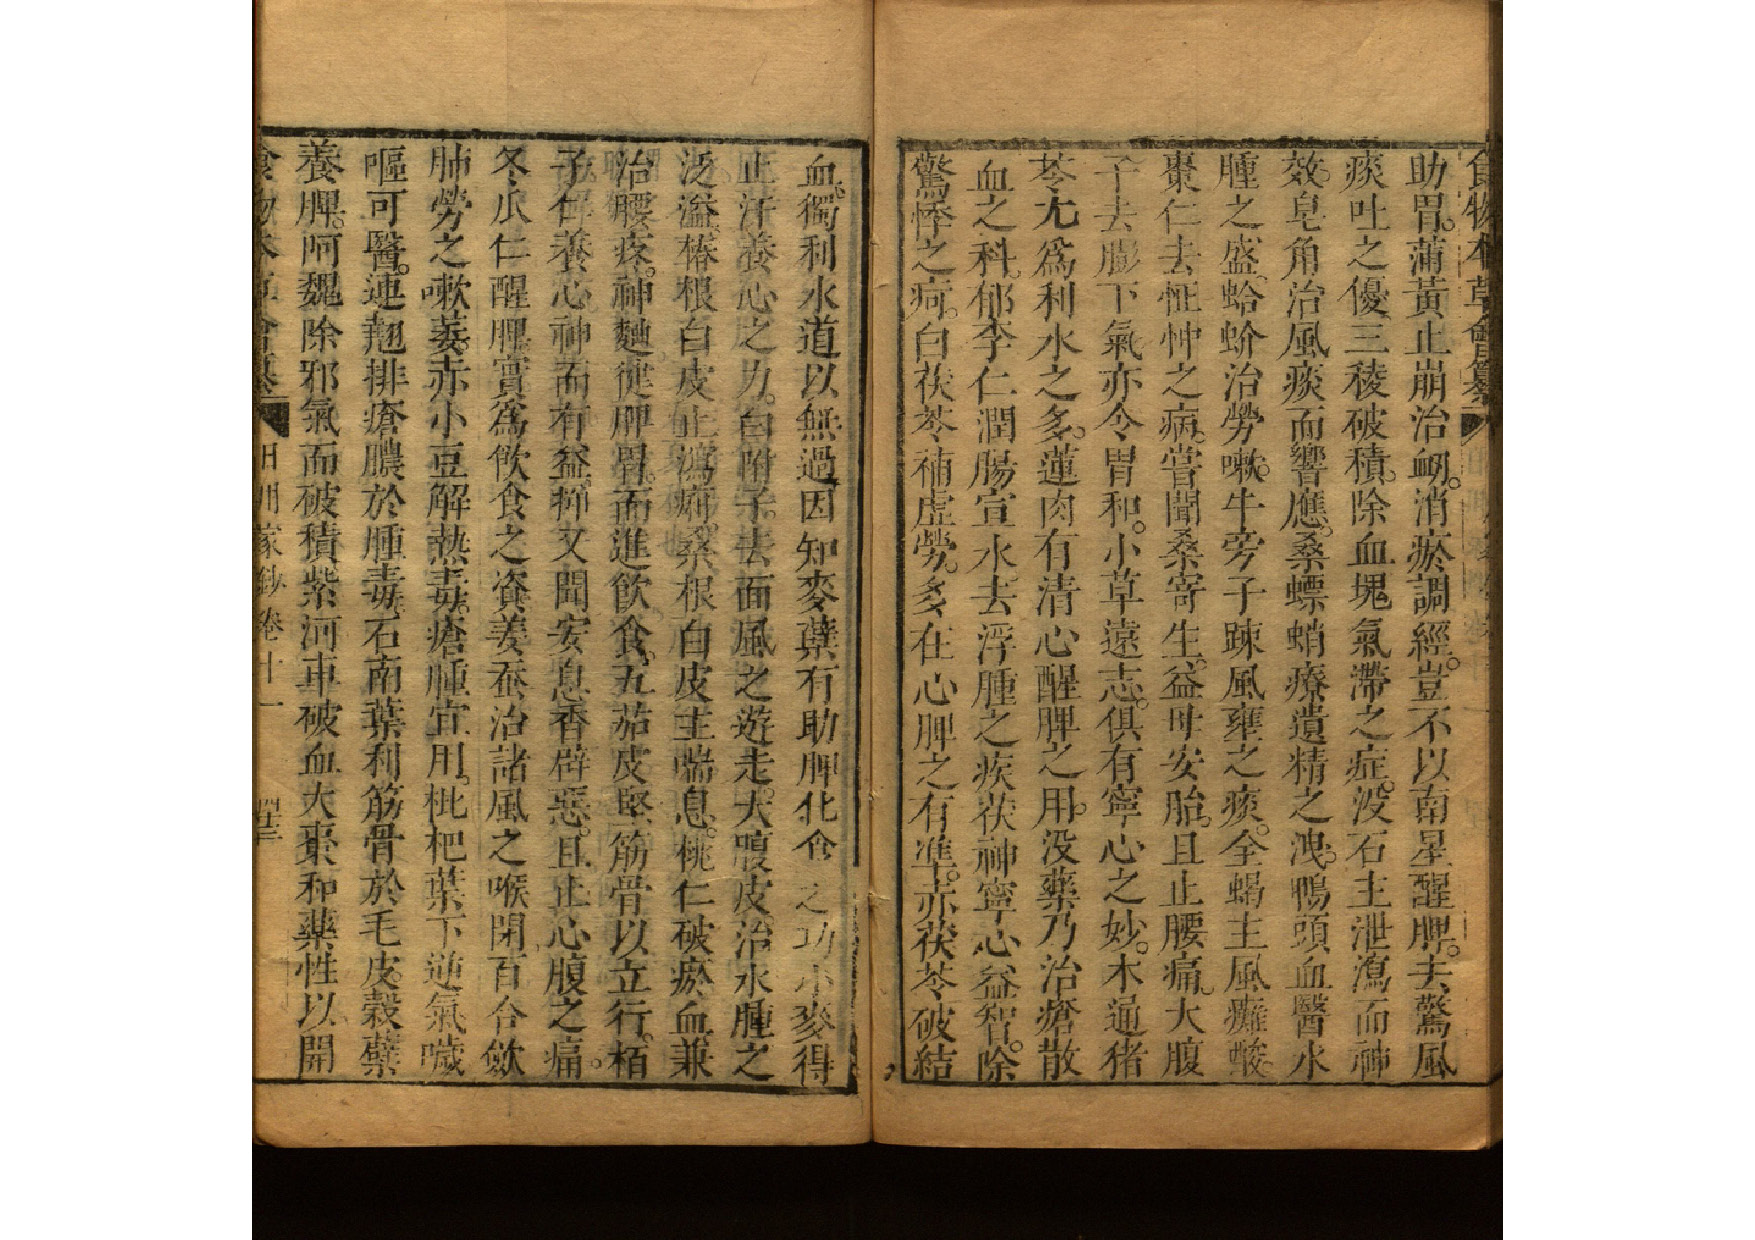 食物本草會纂
助胃。蒲黃止崩治衂。消瘀調經。豈不以南星醒脾。去驚風
痰吐之優。三稜破積。除血塊氣滯之症。没石主泄瀉而神
效。皂角治風痰而響應。桑螵蛸療遺精之洩。鴨頭血醫水
腫之盛。蛤蚧治勞嗽。牛旁子踈風壅之痰。全蝎主風癱。酸
棗仁去怔忡之病。嘗聞桑寄生。益母安胎。且止腰痛。大腹
子去膨下氣亦令胃和。小草遠志。俱有寧心之妙。木通猪
苓尢爲利水之多。蓮肉有清心醒脾之用。没藥乃治瘡散
血之科。郁李仁潤腸宣水去浮腫之疾茯神寧心益智。除
驚悸之疴。白茯苓補虛勞。多在心脾之有準。赤茯苓破結
血。獨利水道以無過因知麥蘖有助脾化食之功小麥得
止汗養心之力。白附子。去面風之遊走。大腹皮。治水腫之
泛溢。椿根白皮止瀉痢。桑根白皮主喘息。桃仁破瘀血兼
治腰疼。神麯健脾胃。而進飲食。五茄皮堅筋骨以立行。栢
子仁養心神而有益。抑又聞安息香辟惡。且止心腹之痛。
冬瓜仁醒脾。實爲飲食之資姜蚕治諸風之喉閉百合歛
肺勞之嗽萎。赤小豆解熱毒。瘡腫宜用。枇杷葉下逆氣噦
嘔可醫。連翹排瘡膿於腫毒。石南葉利筋骨於毛皮。穀蘖
養脾。阿魏除邪氣而破積。紫河車破血大棗和藥性以開
食物本草會纂 日用家鈔卷十一 四三